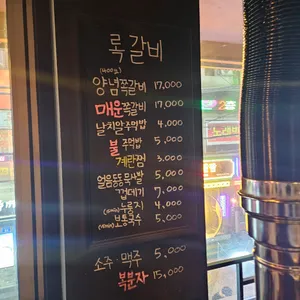 록갈비
(400g)
양념쪽갈비 17,000
매운쪽갈비 17,000
날치알주먹밥 4,000
불주먹밥 5,000
계란찜 3,000
얼음동동묵사발 5,000
껍데기 7,000
누룽지 4,000
보통국수 5,000
소주·맥주 5,000
복분자 15,000